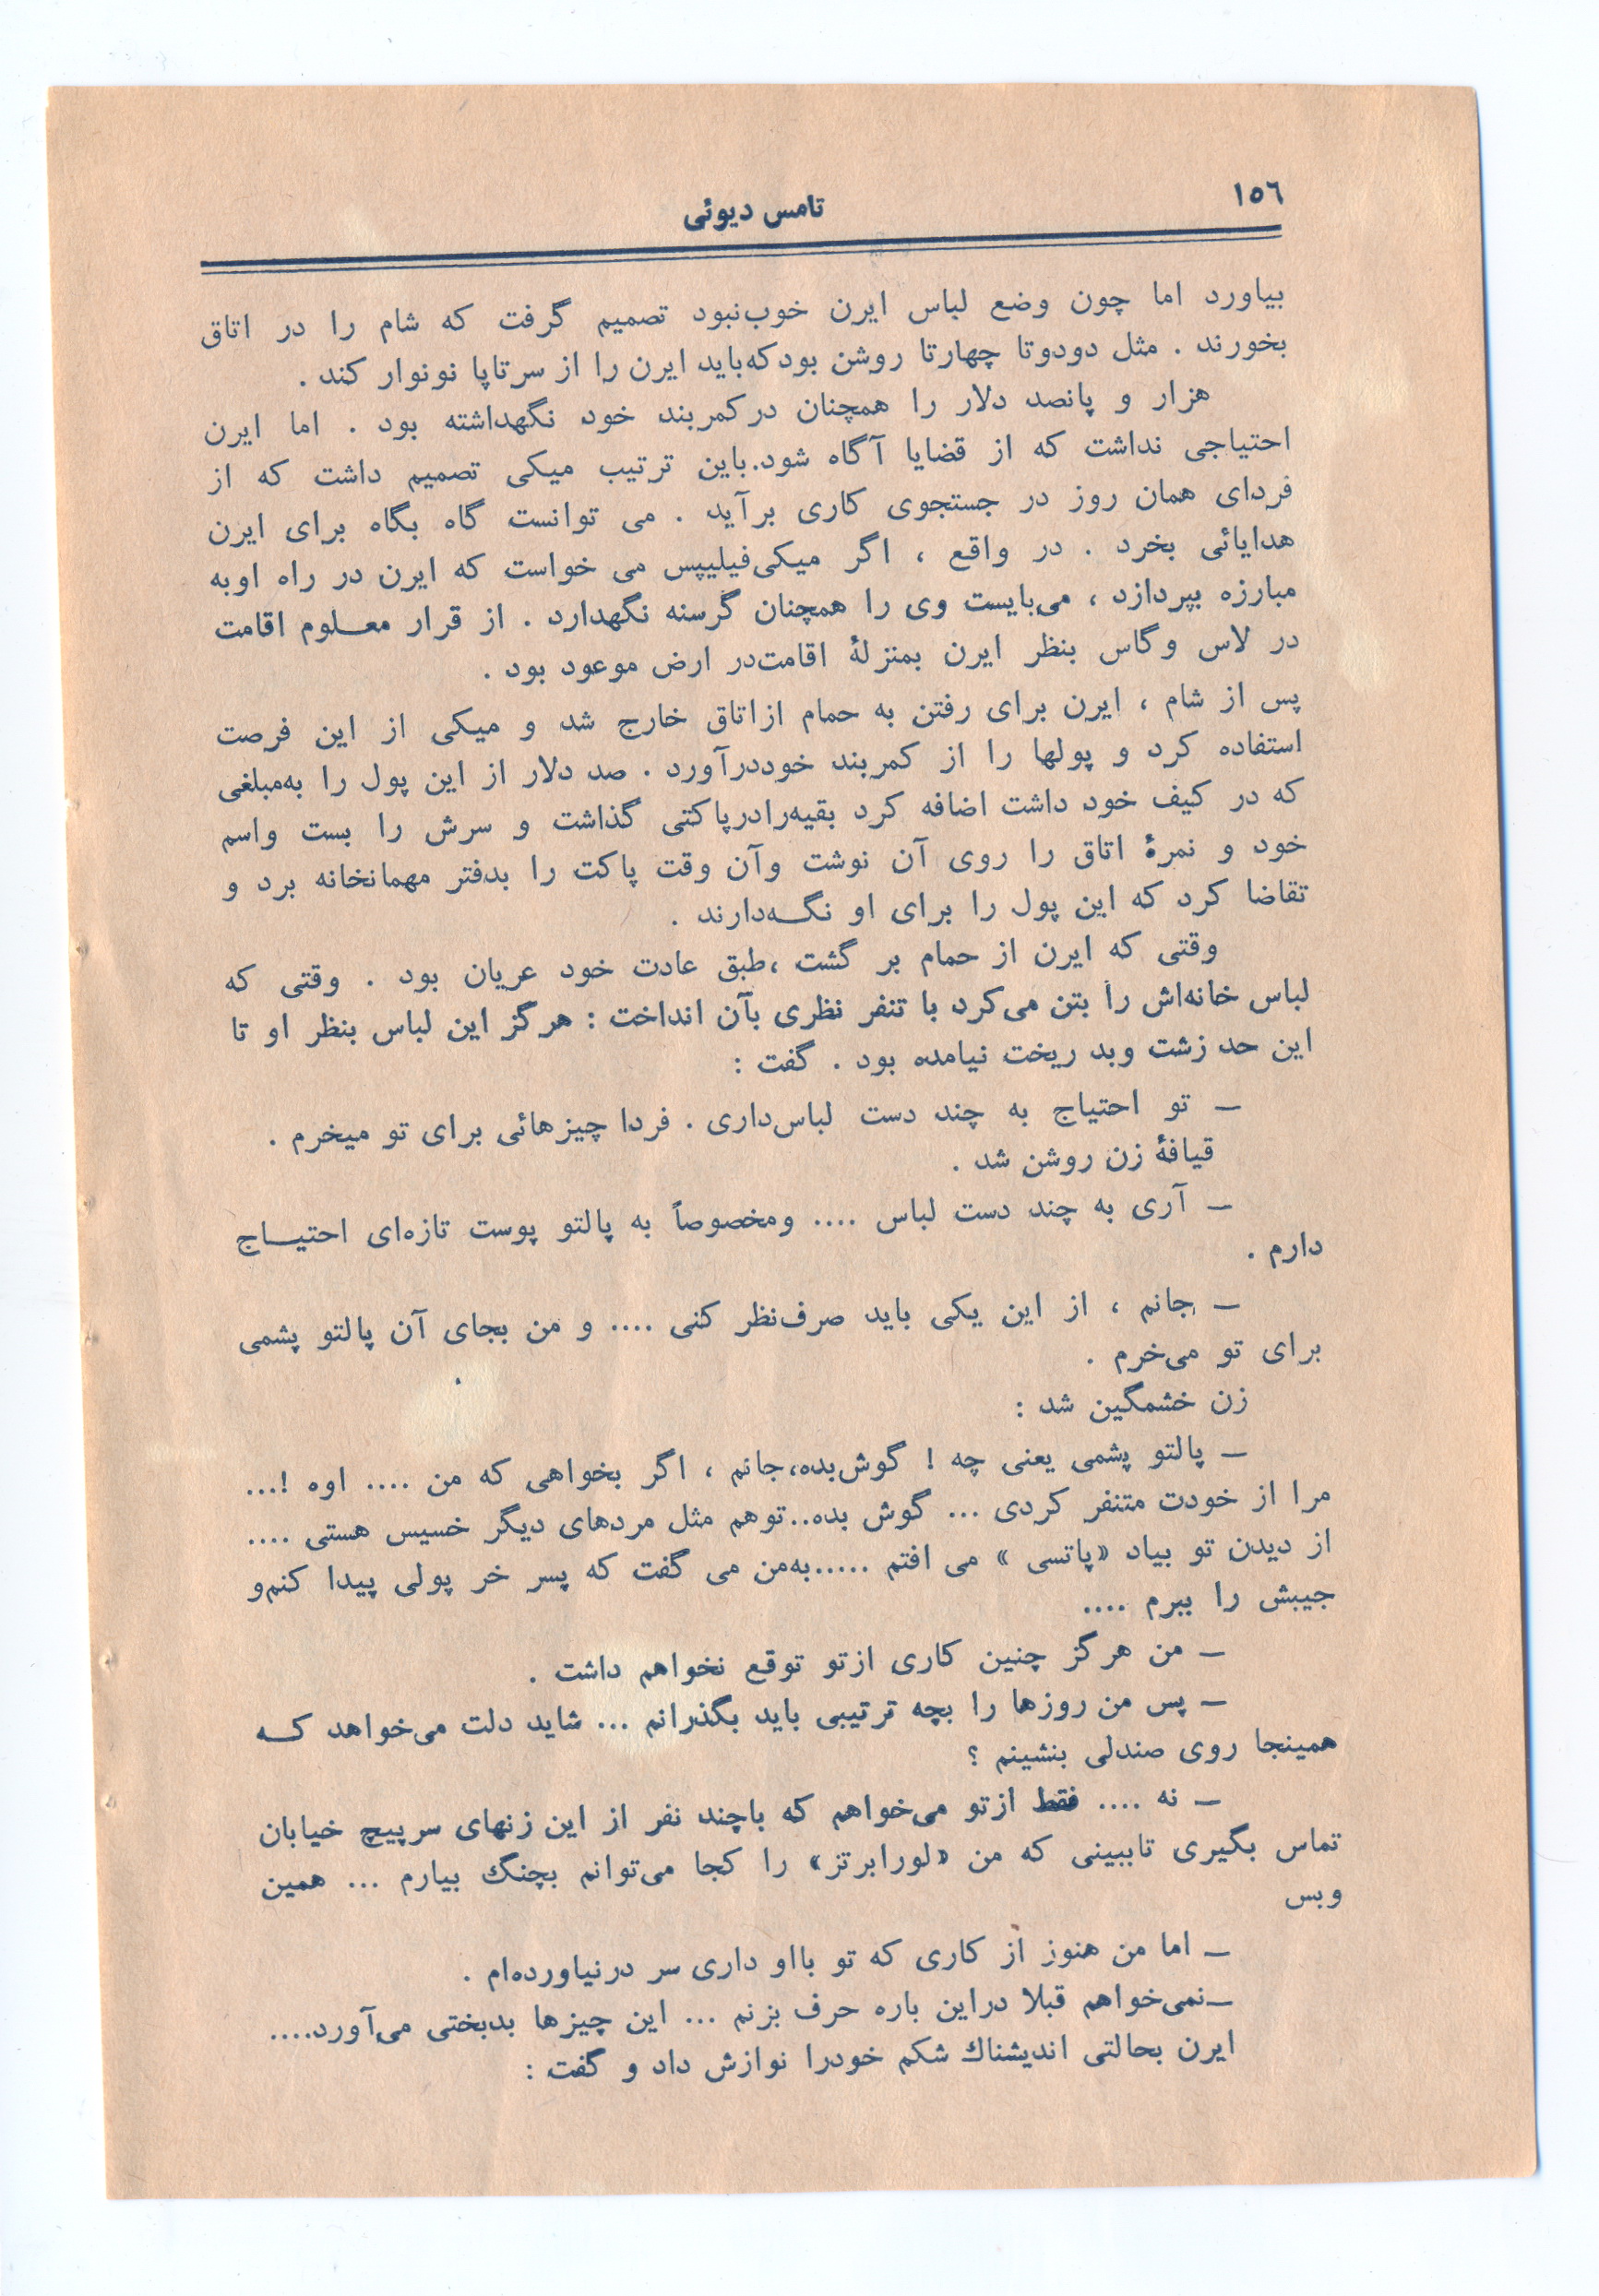 ۱۵۶
تامس دیوئی
بیاورد اما چون وضع لباس ایرن خوب‌نبود تصمیم گرفت که شام را در اتاق
بخورند . مثل دودوتا چهارتا روشن بودکه‌باید ایرن را از سرتاپا نونوار کند .
هزار و پانصد دلار را همچنان درکمربند خود نگهداشته بود . اما ایرن
احتیاجی نداشت که از قضایا آگاه شود.باین ترتیب میکی تصمیم داشت که از
فردای همان روز در جستجوی کاری برآید . می توانست گاه بگاه برای ایرن
هدایائی بخرد . در واقع ، اگر میکی‌فیلیپس می خواست که ایرن در راه اوبه
مبارزه بپردازد ، می‌بایست وی را همچنان گرسنه نگهدارد . از قرار معلوم اقامت
در لاس وگاس بنظر ایرن بمنزلهٔ اقامت‌در ارض موعود بود .
پس از شام ، ایرن برای رفتن به حمام ازاتاق خارج شد و میکی از این فرصت
استفاده کرد و پولها را از کمربند خوددرآورد . صد دلار از این پول را به‌مبلغی
که در کیف خود داشت اضافه کرد بقیه‌رادرپاکتی گذاشت و سرش را بست واسم
خود و نمرهٔ اتاق را روی آن نوشت وآن وقت پاکت را بدفتر مهمانخانه برد و
تقاضا کرد که این پول را برای او نگه‌دارند .
وقتی که ایرن از حمام بر گشت ،طبق عادت خود عریان بود . وقتی که
لباس خانه‌اش را بتن می‌کرد با تنفر نظری بآن انداخت : هرگز این لباس بنظر او تا
این حد زشت وبد ریخت نیامده بود . گفت :
ـ تو احتیاج به چند دست لباس‌داری . فردا چیزهائی برای تو میخرم .
قیافهٔ زن روشن شد .
ـ آری به چند دست لباس .... ومخصوصاً به پالتو پوست تازه‌ای احتیاج
دارم .
ـ جانم ، از این یکی باید صرف‌نظر کنی .... و من بجای آن پالتو پشمی
برای تو می‌خرم .
زن خشمگین شد :
ـ پالتو پشمی یعنی چه ! گوش‌بده،جانم ، اگر بخواهی که من .... اوه !...
مرا از خودت متنفر کردی ... گوش بده..توهم مثل مردهای دیگر خسیس هستی ....
از دیدن تو بیاد «پاتسی » می افتم .....به‌من می گفت که پسر خر پولی پیدا کنم‌و
جیبش را ببرم ....
ـ من هرگز چنین کاری ازتو توقع نخواهم داشت .
ـ پس من روزها را بچه ترتیبی باید بگذرانم ... شاید دلت می‌خواهد که
همینجا روی صندلی بنشینم ؟
ـ نه .... فقط ازتو می‌خواهم که باچند نفر از این زنهای سرپیچ خیابان
تماس بگیری تاببینی که من «لورابرتز» را کجا می‌توانم بچنگ بیارم ... همین
وبس
ـ اما من هنوز از کاری که تو بااو داری سر درنیاورده‌ام .
ـنمی‌خواهم قبلا دراین باره حرف بزنم ... این چیزها بدبختی می‌آورد....
ایرن بحالتی اندیشناك شکم خودرا نوازش داد و گفت :